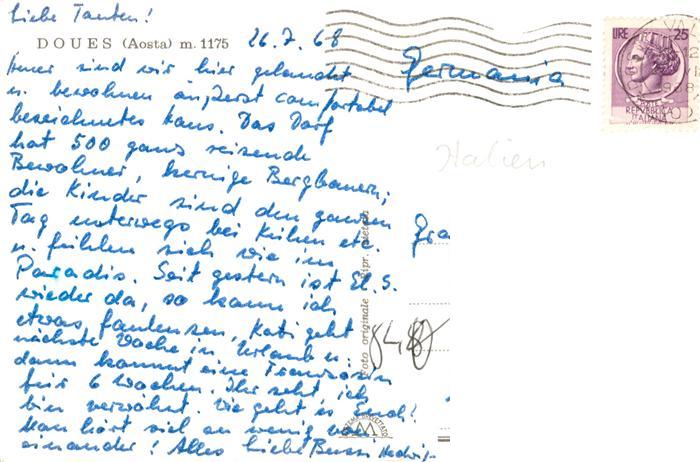 Liebe Tanten!
DOUES (Aosta) m. 1175 26.7.68
sind wir hier gelandet
u. bewohnen äußerst comfortabel
bezeichnetes Haus. Das Dorf
hat 500 ganz reizende
Bewohner, kernige Bergbauern;
die Kinder sind den ganzen
Tag unterwegs bei Kühen etc.
u. fühlen sich wie im
Paradis. Seit gestern ist El. S.
wieder da, so kann ich
etwas faulenzen, Kati geht
nächste Woche in Urlaub u.
dann kommt eine Französin
für 6 Wochen. Ihr seht, ich
bin verwöhnt. Wie geht es Euch?
Man hört viel zu wenig von
einander! Alles Liebe Hedwig
Germania
LIRE 25
REPVBBLICA
ITALIANA
Italien
Gra
Foto originale